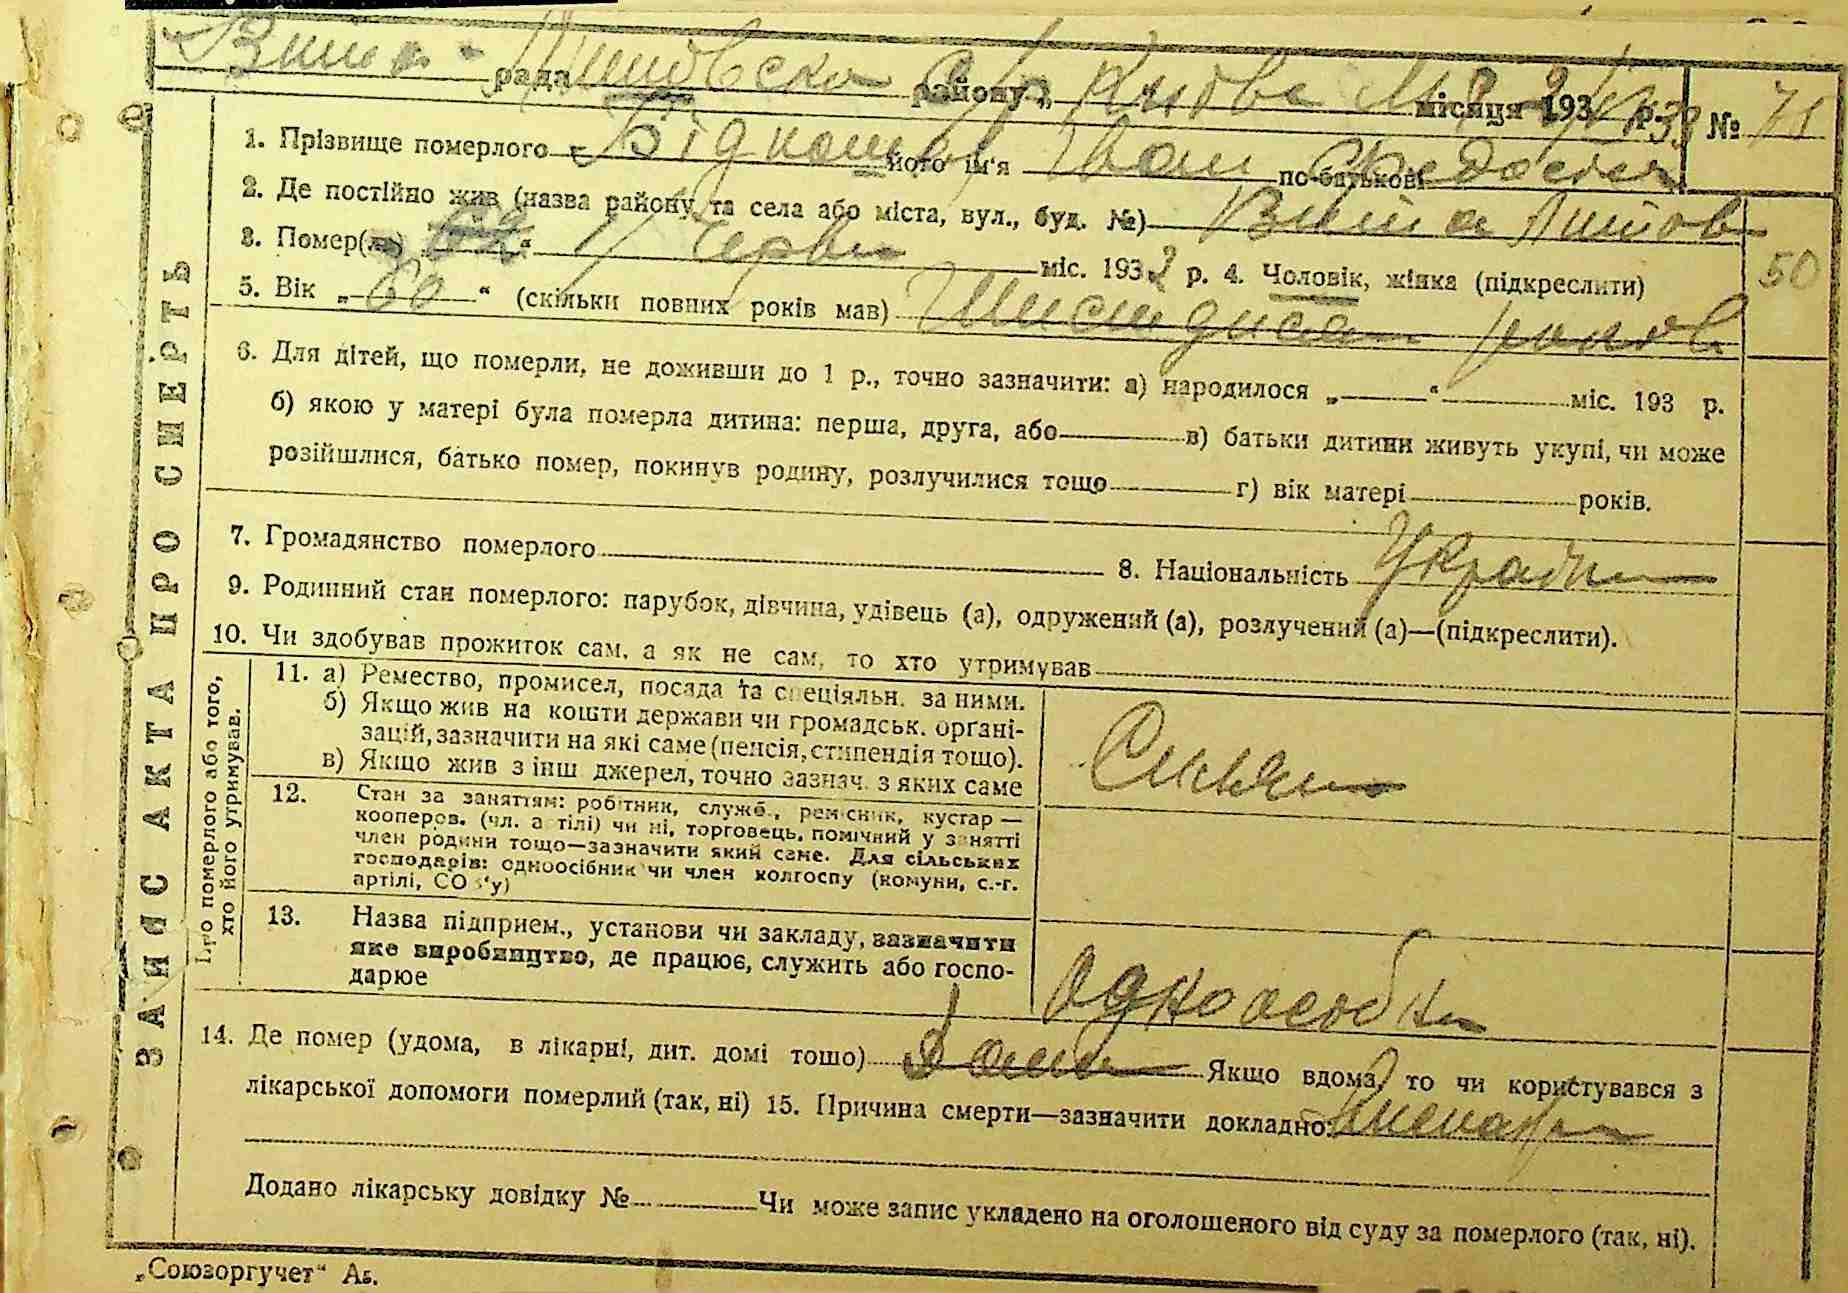 рада района місяця 193 р. № 71
1. Прізвище померлого його ім'я Іван по-батькові
2. Де постійно жив (назва району та села або міста, вул., буд. №) Вита Литов
3. Помер(ла) „ “ 1/ Червн міс. 193 р. 4. Чоловік, жінка (підкреслити)
50
5. Вік „60“ (скільки повних років мав) Шисдисят років
6. Для дітей, що померли, не доживши до 1 р., точно зазначити: а) народилося „ “ міс. 193 р.
б) якою у матері була померла дитина: перша, друга, або в) батьки дитини живуть укупі, чи може
розійшлися, батько помер, покинув родину, розлучилися тощо г) вік матері років.
7. Громадянство померлого 8. Національність Україн
9. Родинний стан померлого: парубок, дівчина, удівець (а), одружений (а), розлучений (а)—(підкреслити).
10. Чи здобував прожиток сам, а як не сам, то хто утримував
ЗАПИС АКТА ПРО СМЕРТЬ
Про померлого або того, хто його утримував.
11. а) Ремество, промисел, посада та спеціяльн. за ними.
б) Якщо жив на кошти держави чи громадськ. орґані-
зацій, зазначити на які саме (пенсія, стипендія тощо).
в) Якщо жив з інш джерел, точно зазнач. з яких саме
12. Стан за заняттям: робітник, служб., ремісник, кустар —
кооперов. (чл. артілі) чи ні, торговець, помічний у занятті
член родини тощо—зазначити який саме. Для сільських
господарів: одноосібник чи член колгоспу (комуни, с.-г.
артілі, СОЗ'у)
13. Назва підприєм., установи чи закладу, зазначити
яке виробництво, де працює, служить або госпо-
дарює одноосібн
14. Де помер (удома, в лікарні, дит. домі тощо) Дома Якщо вдома, то чи користувався з
лікарської допомоги померлий (так, ні) 15. Причина смерти—зазначити докладно
Додано лікарську довідку № Чи може запис укладено на оголошеного від суду за померлого (так, ні).
„Союзоргучет“ А5.